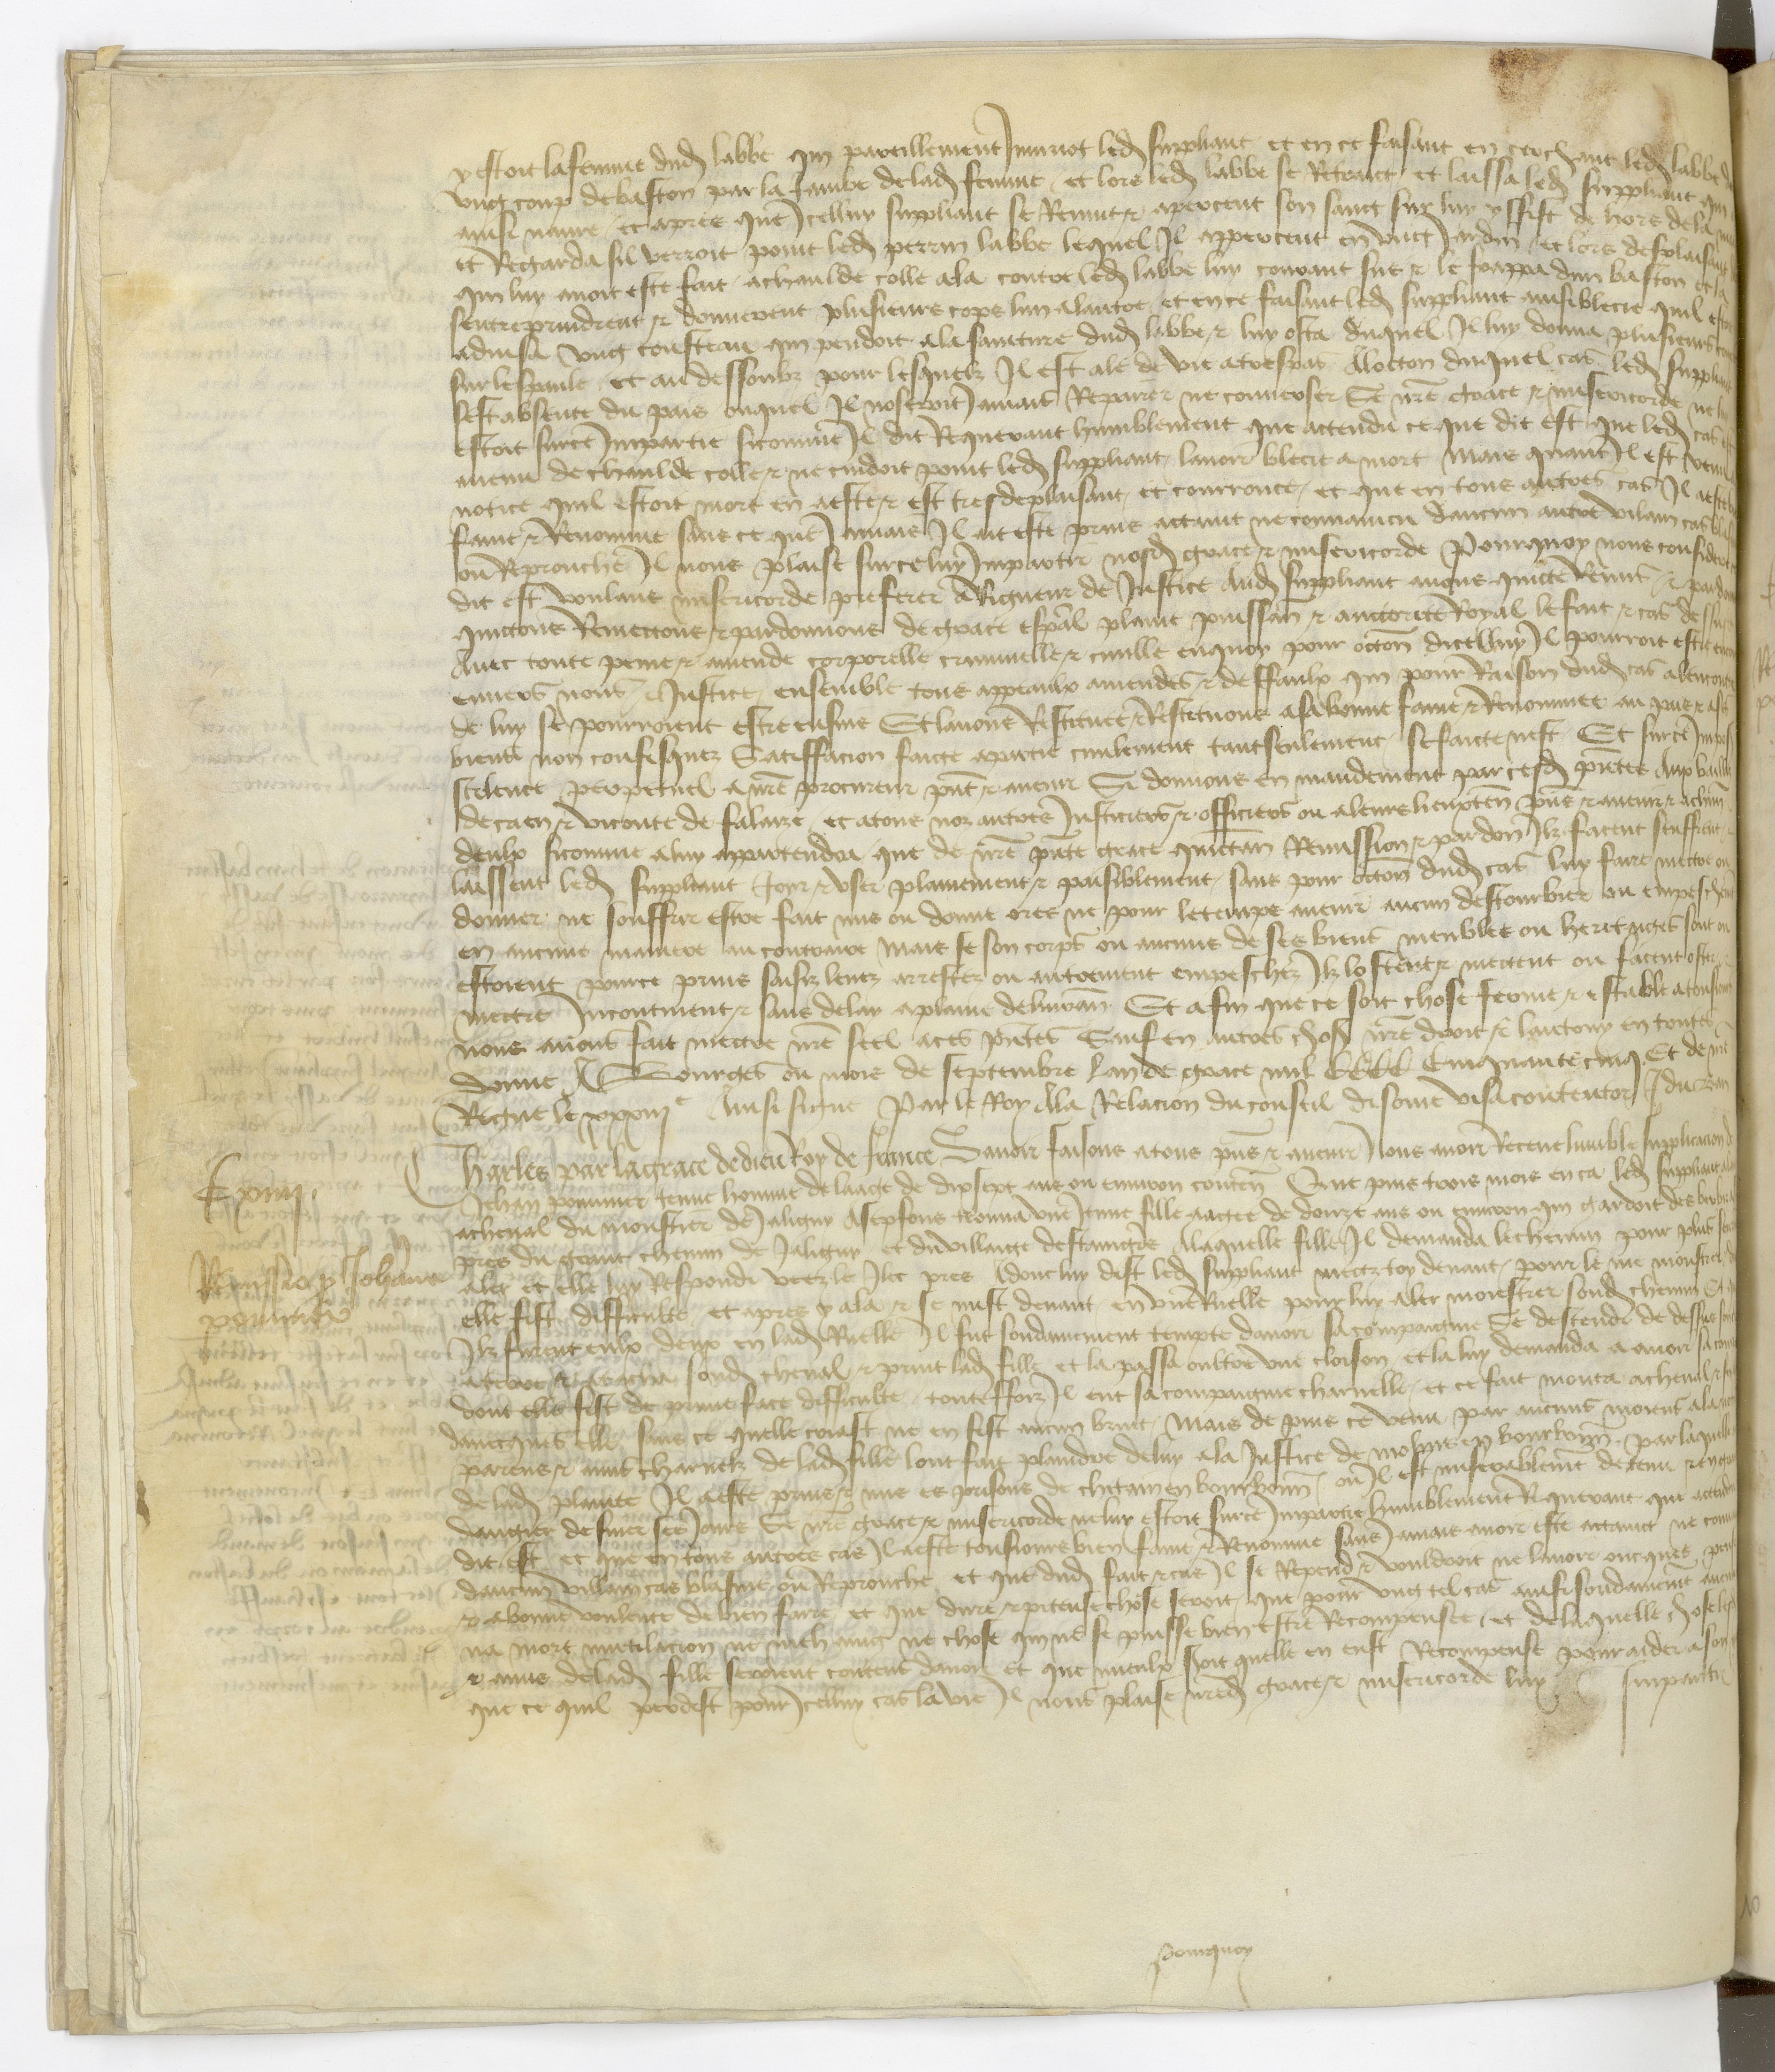 y estoit la femme dud labbe qui pareillement Iniurioit led suppliant et en ce faisant en cerchant led labbe
ung coup de baston par la Jambe de lad femme et lors led labbe se Retraict et laissa led suppliant
ainsi navre et apres que Icelluy suppliant se Remut & apercent son sang sur luy yssist de hors de la
et Regarda sil verroit point led perrin labbe lequel Il appercent en ung Jardin et lors desplaisant
qui luy avoit este fait a chaulde colle ala contre led labbe luy courant sus & le frappa dun baston et
sentreprindrent & donnerent plusieurs cops lun a lautre et en ce faisant led suppliant ainsi blecie quil
advisa ung cousteau qui pendoit ala sainture dud labbe & luy osta duquel Il luy donna plusieurs
sur lespaule et au dessoubz pour lesquelz Il est ale de vie a trespas Aloccon duquel cas led suppliant
sest absente du pais ouquel Il noseroit Jamais Reparer ne converser Se nre grace & misericorde ne
estoit surce Impartie sicomme Il dit Requerant humblement que attendu ce que dit est que led cas
avenu de chaulde colle & ne cuidoit point led suppliant lavoir blecie a mort Mais quant Il est venu
notice quil estoit mort en a este & est tresdeplaisant et courrouce et que en tous autres cas Il a este
fame & Renomme sans ce que Jamais Il ait este prins attaint ne convaincu daucun autre vilain cas
ou Reprouche Il nous plaise surce luy Impartir nosd grace & misericorde Pourquoy nous
dit est voulans misericorde preferer a Rigueur de Justice Aud suppliant avons quicte Remis &
quictons Remectons & pardonnons de grace espal plaine puissan & auctorite Royal le fait & cas
Avec toute peine & amende corporelle criminelle & civille enquoy pour occon dicelluy Il pourroit estre
envers nous & Justice ensemble tous appeaulx amendes & deffaulx qui pour Raison dud cas
de luy se pourroient estre ensuis Et lavons Restitue & Restituons a sa bonne fame & Renommee au pais & a ses
biens non confisquez Satiffacion faicte a partie civilement tantseulement se faicte nest Et surce
silence perpetuel a nre procureur pnt & avenir Si donnons en mandement par cesd pntes Aux
de caen & viconte de falaize et atous noz autres Justiciers & officiers ou a leurs lieuxten pns & avenir &
deulx sicomme a luy appartendra que de nre pnte grace quictan Remission & pardon Ilz facent seuffrent
laissent led suppliant Joyr & user plainement & paisiblement sans pour occon dud cas luy faire mectre ou
donner ne souffrir estre fait mis ou donne ores ne pour letemps avenir aucun destourbier ou empeschem
en aucune maniere au contraire Mais se son corps ou aucuns de ses biens meubles ou heritaiges sont ou
estoient pource prins saisiz levez arrestez ou autrement empeschez Ilz lostent & mectent ou facent oster
mectre Incontinent & sans delay a plaine delivran Et afin que ce soit chose ferme & estable a tousiours
nous avons fait mectre nre seel aces pntes Sauf en autres chos nre droit & lautruy en toutes
Donne A Bourges ou mois de septembre Lan de grace mil CCCC Cinquante cinq Et de nre
Regne le xxxiiie Ainsi signe Par le Roy Ala Relacion du conseil disome visa contentor J du ban
Charles par la grace de dieu Roy de france Savoir faisons atous pns & avenir Nous avoir Receue lumble supplicacion
Jehan pommier Jeune homme de laage de dixsept ans ou environ conten Que puis trois mois enca led suppliant
a cheval du monstier de Jaligny Asepsons trouva une Jeune fille aagee de douze ans ou environ qui gardoit des brebis
pres du grant chemin de Jaligny et du villaige destancgre Alaquelle fille Il demanda le chemin pour
aler et elle luy Respondi veez le Ilec pres Adonc luy dist led suppliant mectz toy devant pour le me monstrer
elle fist difficulte et apres y ala & se mist devant en une Ruelle pour luy aler monstrer sond chemin Et
Ilz furent eulx deux en lad Ruelle Il fut soudainement tempte davoir sa compaignie Se destendi de dessus
a terre & atacha sond cheval & print lad fille et la passa oultre une cloison et la luy demanda a avoir sa
dont elle fist de prime face difficulte toutesfoiz Il eut sa compaignie charnelle et ce fait monta acheval
davecques elle sans ce quelle criast ne en fist aucun bruit Mais de puis ce venu par aucuns moiens
parens & amis charnelz de lad fille lont fait plaindre deluy ala Justice de molins en bourbonn par laquelle
de lad plainte Il a este prins & mis es prisons de chetain en bourbonn ou Il est miserablement detenu
dangier de finer ses Jours Se nre grace & misericorde ne luy estoit surce Impartie humblement Requerant que
dit est et que en tous autres cas Il a este tousiours bien fame & Renomme sans Jamais avoir este attaint ne
daucun villain cas blasme ou Reprouche et que dud fait & cas Il se Repend & vouldroit ne lavoir oncques
& a bonne voulente de bien faire et que dure & piteuse chose seroit que pour ung tel cas ainsi soudainement
na mort mutilacion ne mehaing ne chose qui ne se puisse bien estre Recompensee et de laquelle chose les
& amis de lad fille seroient contens davoir et que mieulx soit quelle en eust Recompense pour aider a son
que ce quil perdist pour Icelluy cas la vie Il nous plaise nosd grace & misericorde luy Impartir
pourquoy
Remissio p Johanne
pommier